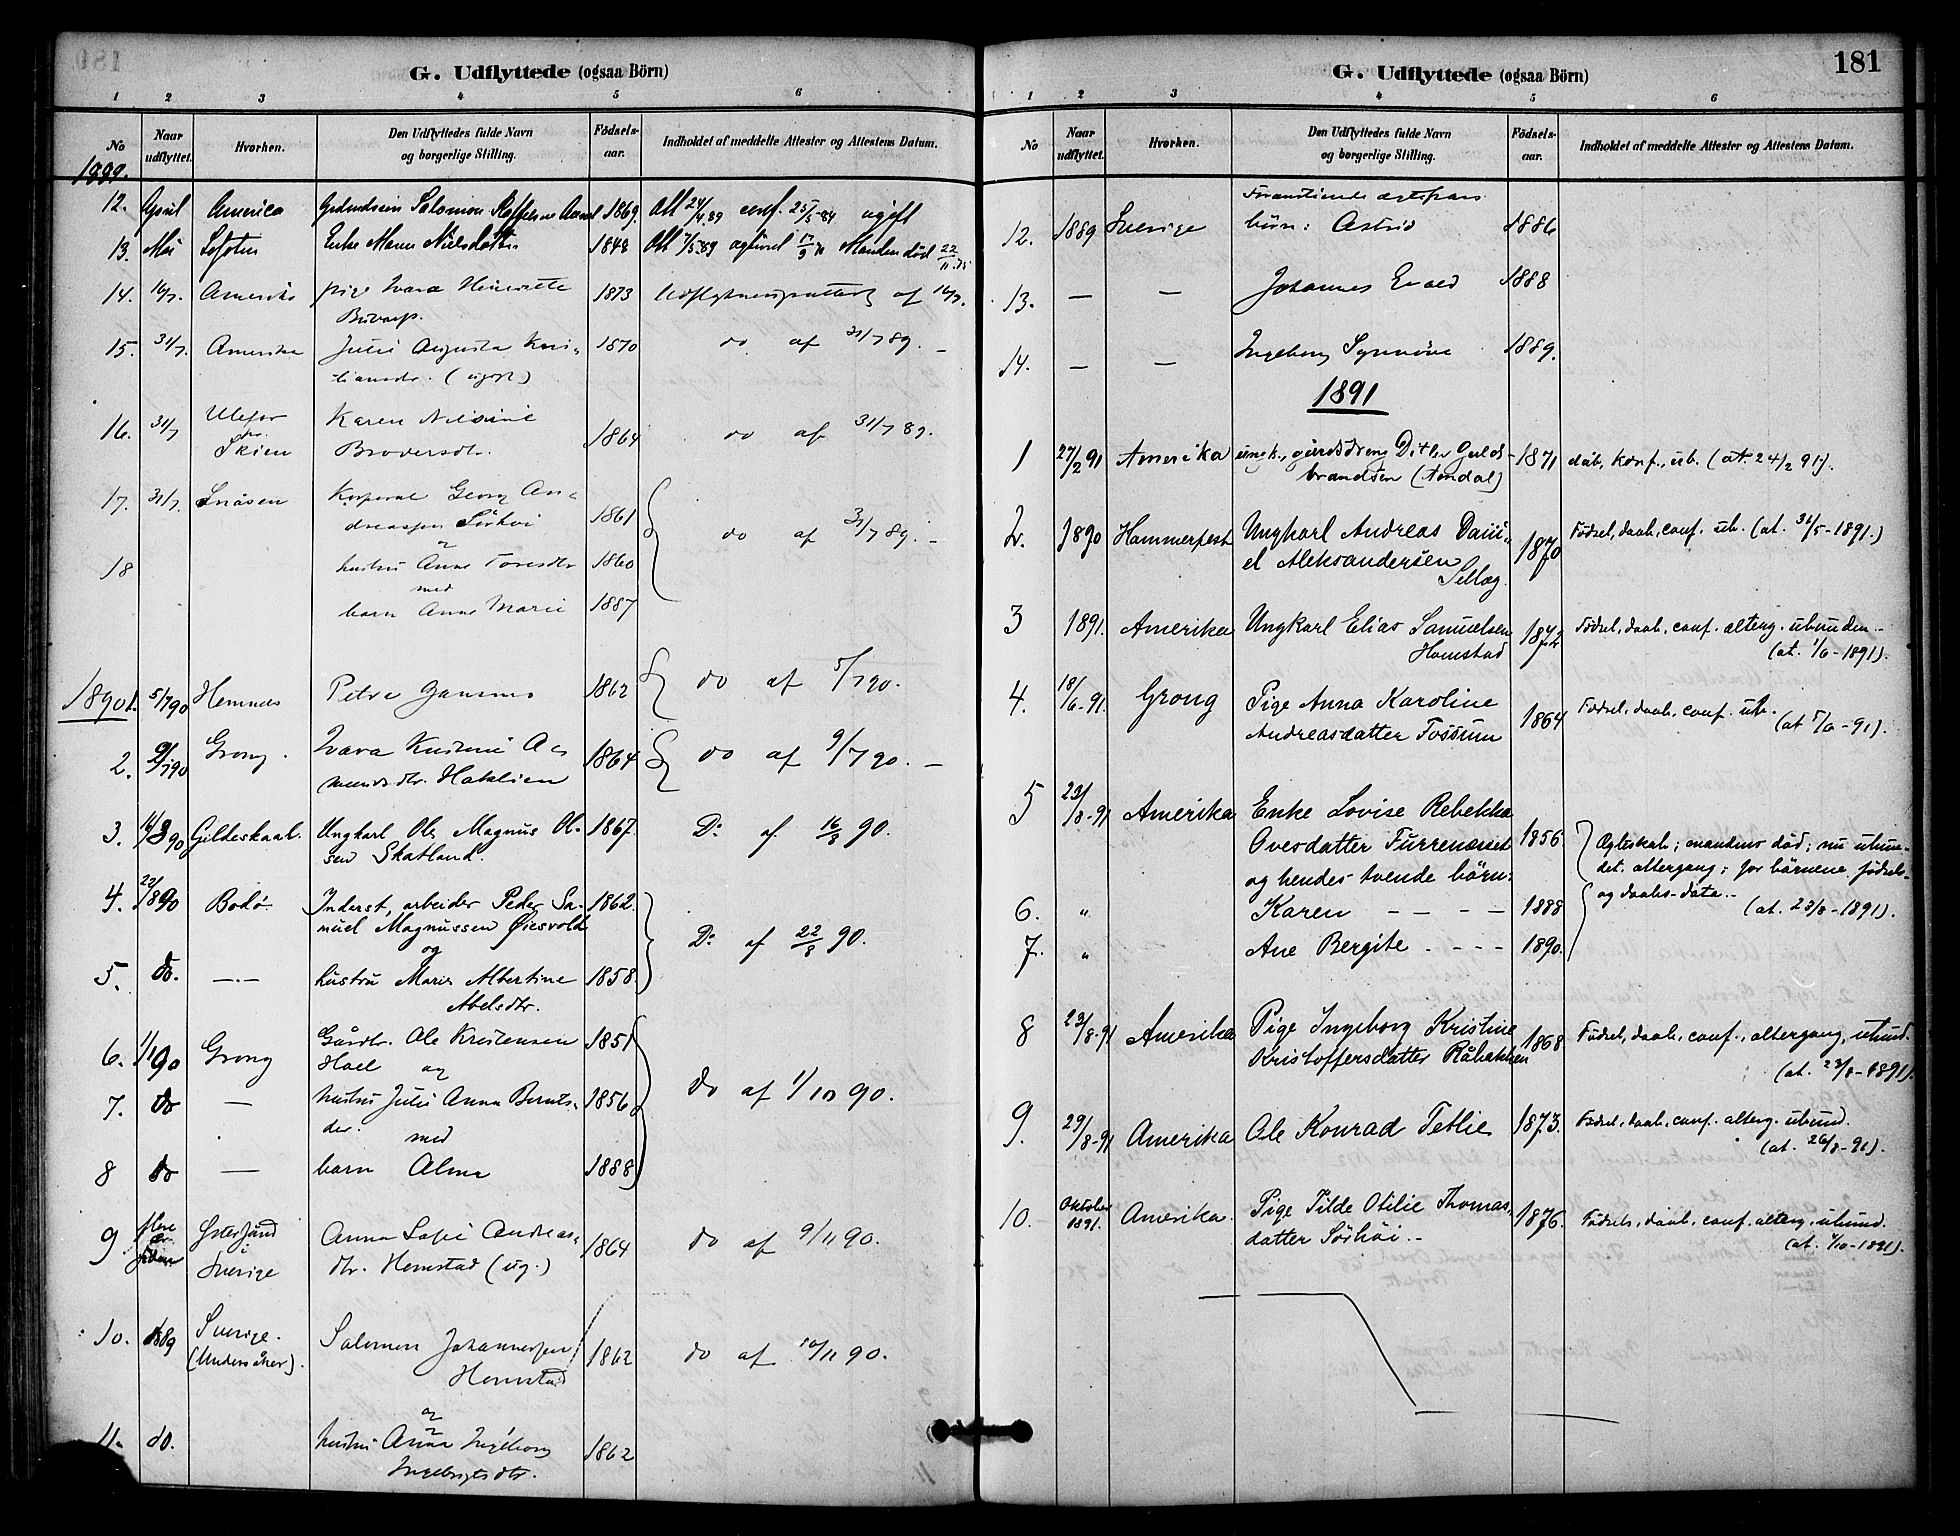 G. Udflyttede (ogsaa Börn)
1 2 3 4 5 6
No
Naar udflyttet.
Hvorhen.
Den Udflyttedes fulde Navn og borgerlige Stilling.
Födselsaar.
Indholdet af meddelte Attester og Attestens Datum.
1889.
12. April America Salomon 1869. Att 24/4 89 conf. 25/5 84 ugift
13. Mai Lofoten Enke Maren Nielsdatter 1848 Att 7/5 89 Manden död 22/11 75
14. 16/7. Amerika pige Ivara Henriette 1873 af 16/7.
15. 31/7. Amerika Julie Augusta Kris- 1870 do af 31/7 89. —
tiansdr. (ugift)
16. 31/7 Ulefos Karen Nilsine 1864 do af 31/7 89.
Skien Brodersdtr.
17. 31/7. Snåsen Korporal Georg An- 1861 do af 31/7 89. —
dreassen Sörhöi
18 hustru Anne Toresdtr 1860
med
barn Anne Marie 1887
1890 1. 5/7 90 Hemnes Petra 1862 do af 5/7 90.
2. 9/7 90 Grong. Ivara 1864 do af 9/7 90. —
3. 16/8 90 Gildeskaal. Ungkarl Ole Magnus Ol- 1867. Do af 16/8 90.
sen Skatland.
4. 22/8 90 Bodö. Inderst, arbeider Peder Sa- 1862. Do af 22/8 90.
muel Magnussen Öiesvold
og
5. do. —.— hustru Marie Albertine 1858.
Abelsdtr.
6. 1/10 90 Grong Gårdbr. Ole Kristensen 1851 do af 1/10 90.
Hoel og
7. do — hustru Julie Anna Bernts- 1856
dtr. med
8 do — barn Alma 1888
9 Östersund Anna Sofie Andreas- 1864 do af 9/11 90.
Sverige dtr. Homstad (ug.)
10. 1889 Sverige. Salomon Johannessen 1862 do af 10/11 90.
(Undersåker). Homstad
og
11. do. hustru Anna Ingeborg 1862
Ingebrigtsdtr.
G. Udflyttede (ogsaa Börn)
181
1 2 3 4 5 6
No
Naar udflyttet.
Hvorhen.
Den Udflyttedes fulde Navn og borgerlige Stilling.
Födselsaar.
Indholdet af meddelte Attester og Attestens Datum.
Foranstående ægtepars
12. 1889 Sverige börn: Astrid 1886
13. — — Johannes Evald 1888
14. — — Ingeborg Synnöve 1889.
1891
1 27/2 91 Amerika ungk., gårdsdreng Ditlev Guld- 1871 dåb, konf., ub. (at. 24/2 91).
brandsen (Aondal)
2. 1890 Hammerfest Ungkarl Andreas Dani- 1870 Födsel, daab, conf. ub. (at. 31/5-1891.)
el Aleksandersen
Sellæg.
3 1891. Amerika Ungkarl Elias Samuelsen 1872 Födsel, daab, conf. alterg. ubunden.
Homstad (at. 1/6-1891).
4. 18/6-91. Grong Pige Anna Karoline 1864 Födsel, daab, conf. ub.
Andreasdatter Fossum (at 5/6-91).
5 23/8-91 Amerika Enke Lovise Rebekka 1856.
Ovesdatter Furrenæset Ægteskab; mandens död; nu ubun-
og hendes tvende börn: det. altergang; for börnene, födsels-
6. " Karen — — — — 1888 og daabs-data.. (at. 23/8-1891).
7. " Ane Bergite - - - - 1890.
8 23/8-91 Amerika Pige Ingeborg Kristine 1868. Födsel, daab, conf., altergang, ubund.
Kristoffersdatter Råbakken (at. 23/8-1891).
9. 29/8-91 Amerika Ole Konrad Tetlie 1873. Födsel, daab, conf. alterg. ubund.
(at. 26/8-91).
10. Oktober 1891. Amerika. Pige Tilde Otilie Thomas- 1876. Födsels, daab, conf. alterg. ubund.
datter Sörhöi.- (at. 1/10-1891).